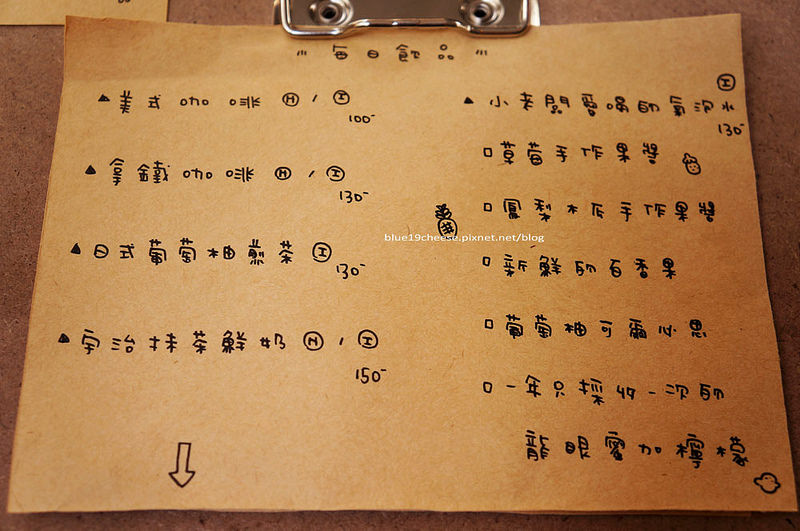 每日飲品
▲美式咖啡 Ⓗ / Ⓘ
100-
▲拿鐵咖啡 Ⓗ / Ⓘ
130-
▲日式葡萄柚煎茶 Ⓘ
130-
▲宇治抹茶鮮奶 Ⓗ / Ⓘ
150-
▲小老闆愛喝的氣泡水 Ⓘ
130-
□草莓手作果醬
□鳳梨木瓜手作果醬
□新鮮的百香果
□葡萄柚可爾必思
□一年只採收一次的
龍眼蜜加檸檬
blue19cheese.pixnet.net/blog